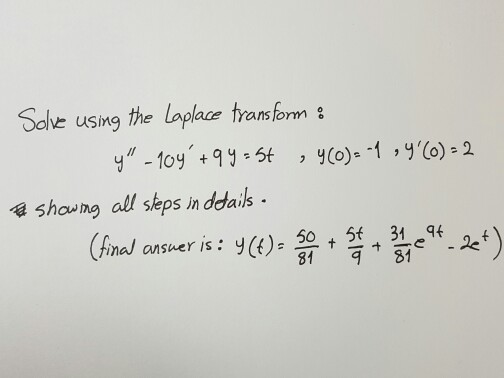 Solve using the Laplace transform :
y'' - 10y' + 9y = 5t , y(0) = -1 , y'(0) = 2
showing all steps in details .
(final answer is : y(t) = 50/81 + 5t/9 + 31/81 e^9t - 2e^t)